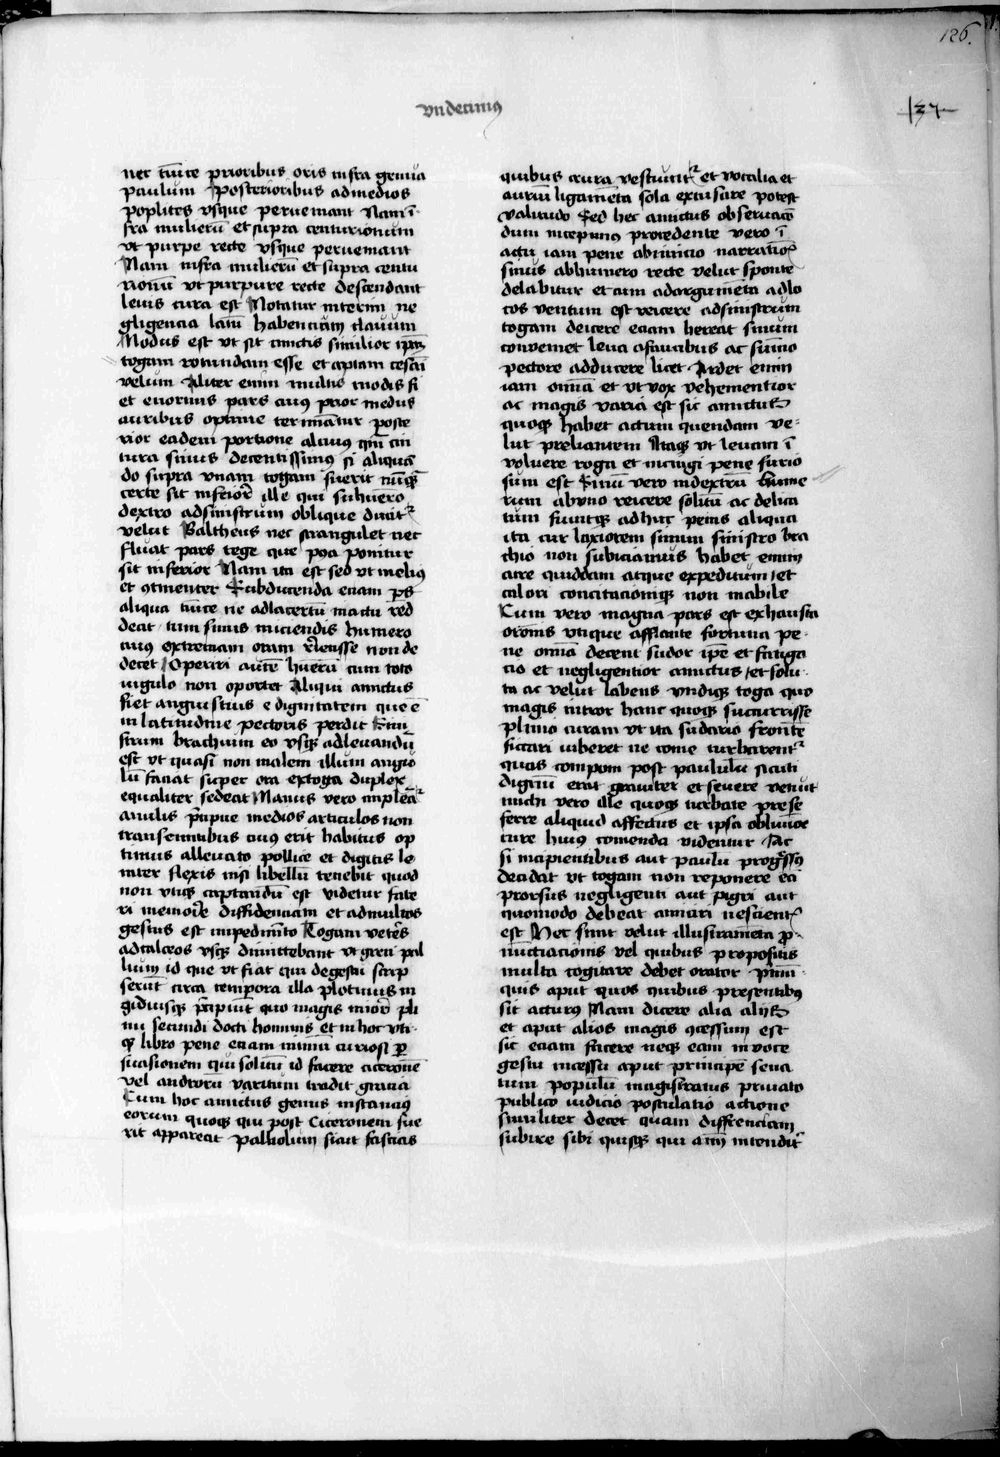 126.
vndecimꝰ
137
nec tūice prioribus oris infra genua
paulum Posterioribus ad medios
poplites vsque perueniant Nam ī-
fra mulierū et supra centurionum
vt purpe recte vsque perueniant
Nam infra mulierū et supra centu
rionū vt purpure recte descendant
leuis cura est Notatur interim ne
gligencia latū habencium clauum
Modus est vt sit cinctis similior ipam
togam rotundam esse et aptam cescā
velum Aliter enim multis modis fi
et enormis pars eius prior medus
auribus optime termīatur poste
rior eadem portione alcius qm̄ cin
tura sinus decentissimus si aliquā
do supra vnam togam fuerit nūq̄
certe sit inferior ille qui sub huero
dextro ad sinistrum oblique ducit᷑
velut Baltheus nec strangulet nec
fluat pars tege que poa ponitur
sit inferior Nam ita est sed vt meliꝰ
et ꝯtinenter Subducenda eciam ps̄
aliqua tūice ne ad lacertū in actu red
deat tum sinus iniciendis humero
cuiꝰ extremam oram reiecisse non de
decet Operiri autē huerū cum toto
iugulo non oportet Aliqui amictus
fiet angustius e dignitatem que ē
in latitudine pectoris perdit Sini
strum brachium eo vsq̄ adleuandū
est vt quasi non malem illum angu
lū faciat super ora ex toga duplex
equaliter sedeat Manus vero impleāt᷑
anulis p̄cipue medios articulos non
transeuntibus cuiꝰ erit habitus op
timus alleuato pollice et digitis le
niter flexis nisi libellū tenebit quod
non vtiq̄ captandū est videtur fate
ri memorie diffidenciam et ad multos
gestus est impedimēto Togam veteres
ad calceos vsq̄ dimittebant vt greci pal
lium id que vt fiat qui de gestu scrip
serūt circa tempora illa plotinus ni
gidiusq̄ p̄cipiūt quo magis mirorr pli
nii secundi docti hominis et in hoc vti-
q̄ libro pene eciam nimiū curiosi per
suasionem qui solitū id facere ciceronē
vel androrū varitum tradit gracia
Cum hoc amictus genus in statuis
eorum quoq̄ qui post Ciceronem fue
rit appareat palliolum sicut fascias
quibus crura vestiunt᷑ et vocalia et
aurium ligamēta sola excusare potest
valitudo Sed hec amictus obseruacō
dum incepimꝰ procedente vero ī
actu iam pene ab inicio narrationis
sinus ab humero recte velut sponte
delabitur et cum ad argumēta ac lo
cos ventum est reicere ad sinistrum
togam deicere eciam hereat sinum
conueniet leua a faucibus ac sūmo
pectore adducere licet Ardet enim
iam omīa et vt vox vehementior
ac magis varia est sic amictus
quoq̄ habet actum quendam ve-
lut preliantem Itaq̄ vt leuam ī
voluere toga et incingi pene furio
sum est Sinū vero in dextrū hume
rum ab vno reicere solitū ac delica
tum fiuntq̄ adhuc peius aliqua
ita cur laxiorem sinum sinistro bra
chio non subiciamus habet enim
acre quiddam atque expeditum et
calori concitacioniq̄ non inabile
Cum vero magna pars est exhausta
oroīnis vtique afflante fortuna pe-
ne omīa decent sudor ipē et fatiga
cio et negligentior amictus et solu-
ta ac velut labens vndiq̄ toga quo
magis miror hanc quoq̄ sucurrisse
plinio curam vt ita sudario frontē
siccari iuberet ne come turbarent᷑
quas componi post paululū sicuti
dignū erat grauiter et seuere venuit
michi vero ille quoq̄ turbate pre se
ferre aliquid affectus et ipsa obliuione
cure huiꝰ comenda videntur Ac
si incipientibus aut paulū progressꝰ
decidat vt togam non reponere eā
prorsus negligenti aut pigri aut
quomodo debeat amiciri nescient᷑
est Nec sunt velut illustramēta pro-
nūctiacionis vel quibus propositis
multa cogitare debet orator Primū
quis aput quos quibus presentibꝰ
sit acturꝰ Nam dicere alia aliis
et aput alios magis ꝯcessum est
sic eciam facere neq̄ eam in voce
gestu incessu aput principē sena
tum populū magistratus priuato
publico iudicio postulatio actione
similiter decet quam differenciam
subice sibi quisq̄ qui aīm intendit᷑